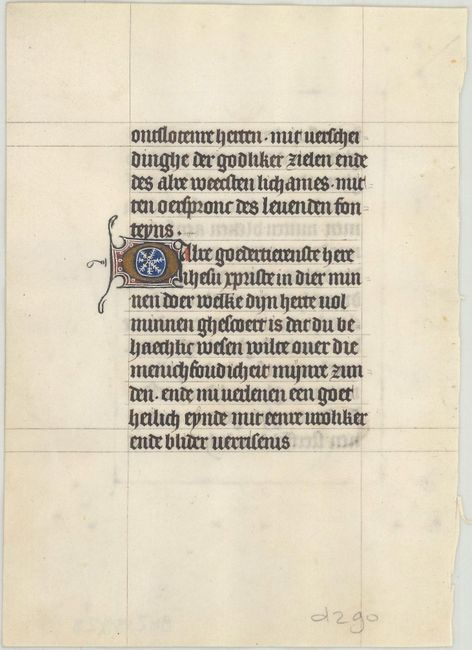 ontslotenre herten · mit verschei
dinghe der godliker zielen ende
des alre weecsten lichames · mit
ten oerspronc des levenden fon
teyns .
O Alre goedertierenste here
ihesu xpriste in dier min
nen doer welke dijn herte vol
minnen ghescoert is dat du be
haechlic wesen wilte over die
menichfoudicheit mijnre zun
den · ende mi verlenen een goet
heilich eynde mit eenre vroliker
ende blider verrisenis
d290